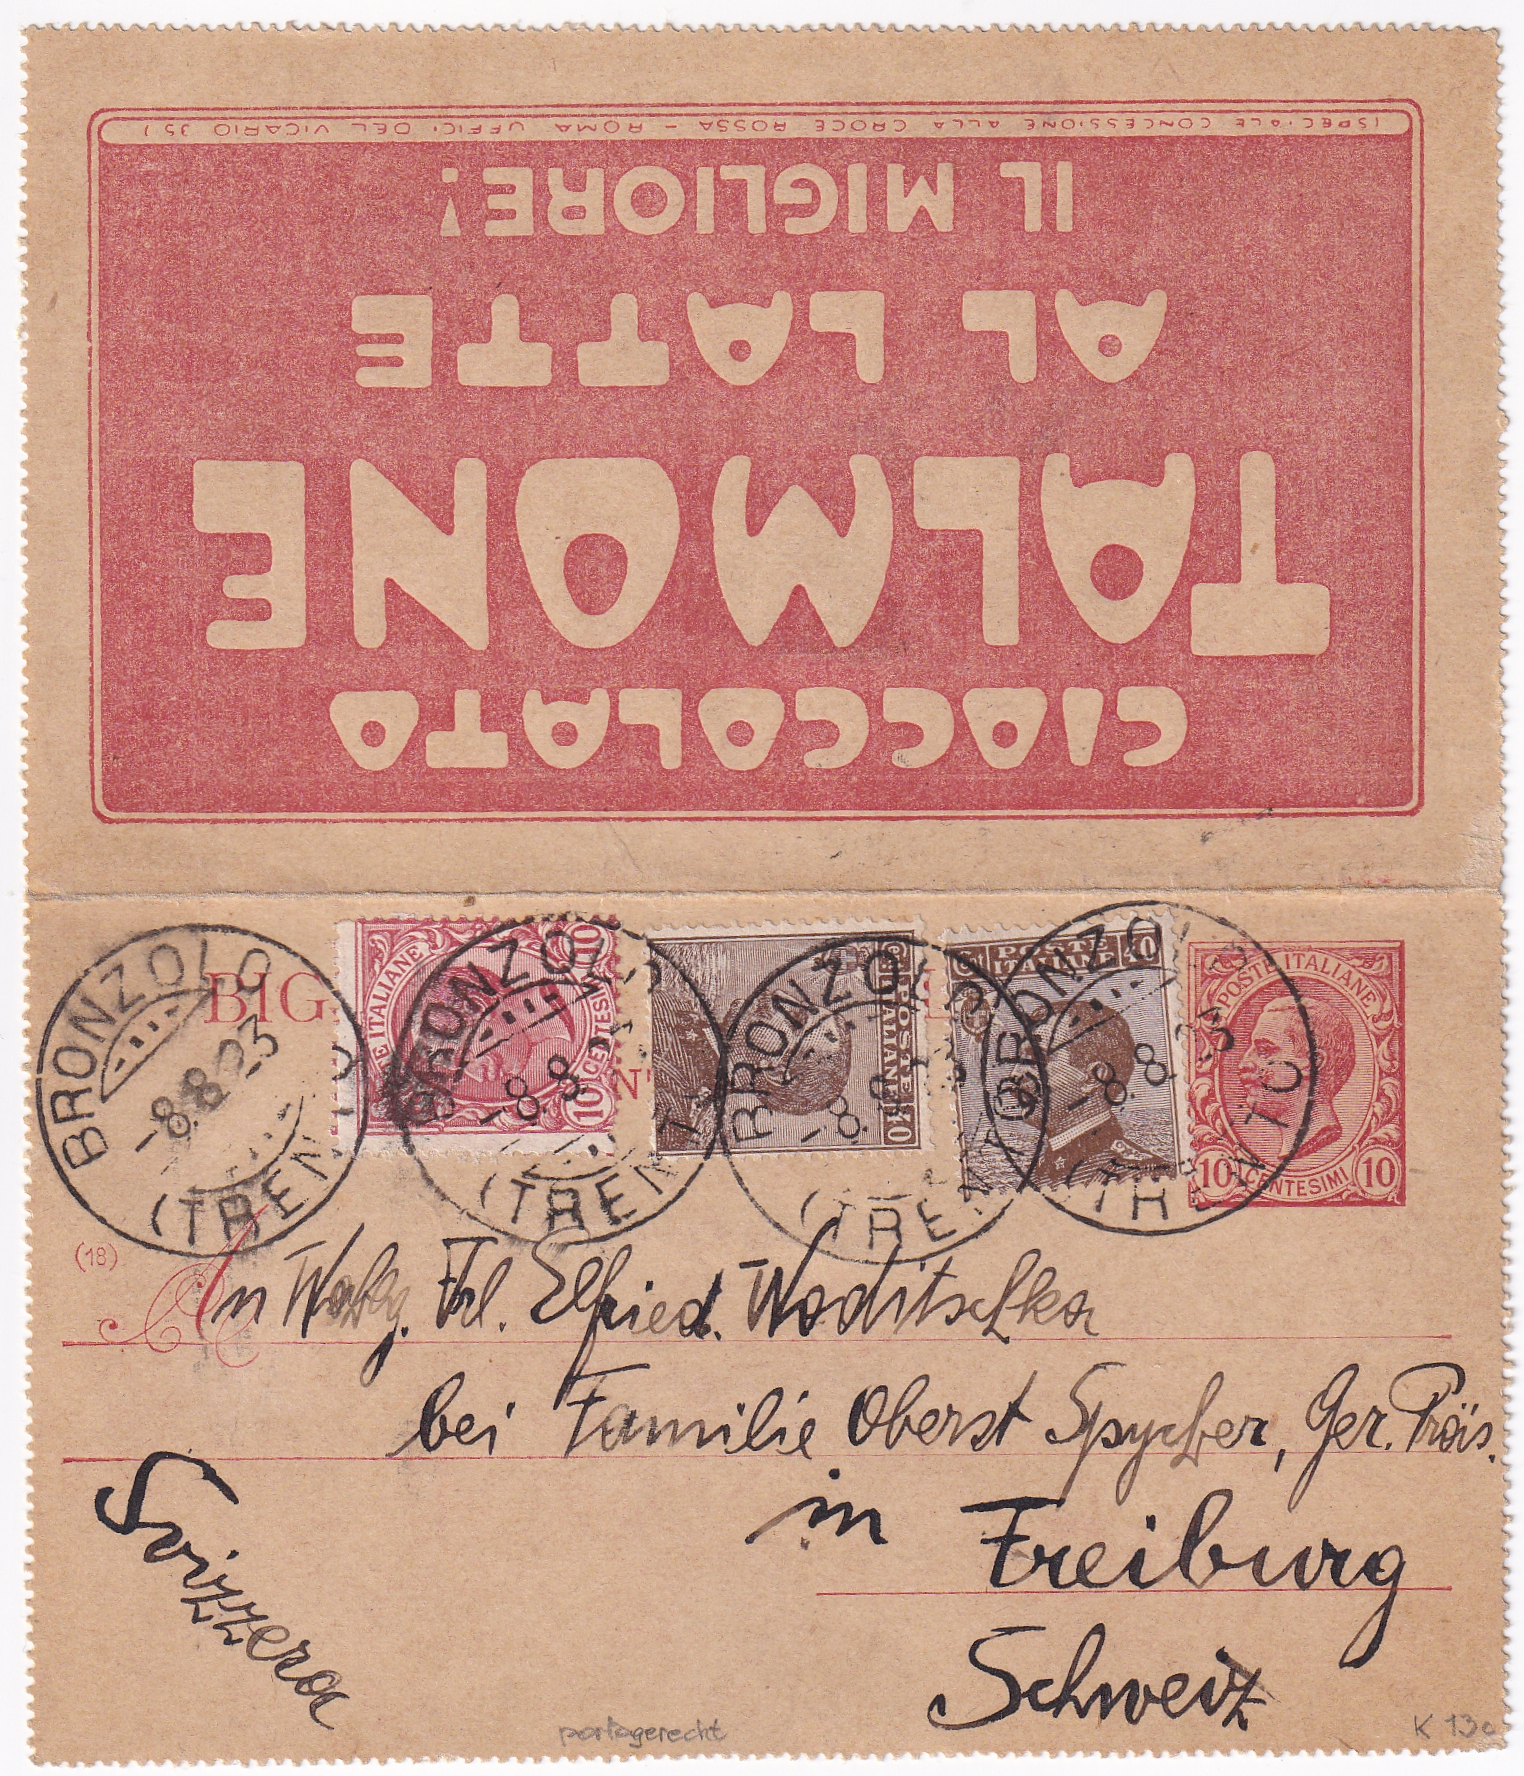 CIOCCOLATO
TALMONE
AL LATTE
IL MIGLIORE!
(SPECIALE CONCESSIONE ALLA CROCE ROSSA - ROMA UFFICI DEL VICARIO 35)
BIG
N
BRONZOLO
-8.8 23
(TREN
E ITALIANE
10 CENTESIMI 10
BRONZOLO
-8.8
(TREN
POSTE ITALIANE
40
BRONZOLO
-8.8
(TREN
POSTE ITALIANE
40
BRONZOLO
-8.8 23
(TRENTO
POSTE ITALIANE
10 CENTESIMI 10
(18)
A
An Wohlg. Frl. Elfried. Woditschka
bei Familie Oberst Spycher, Ger. Präs.
in Freiburg
Schweiz
Svizzera
portogerecht
K 13c